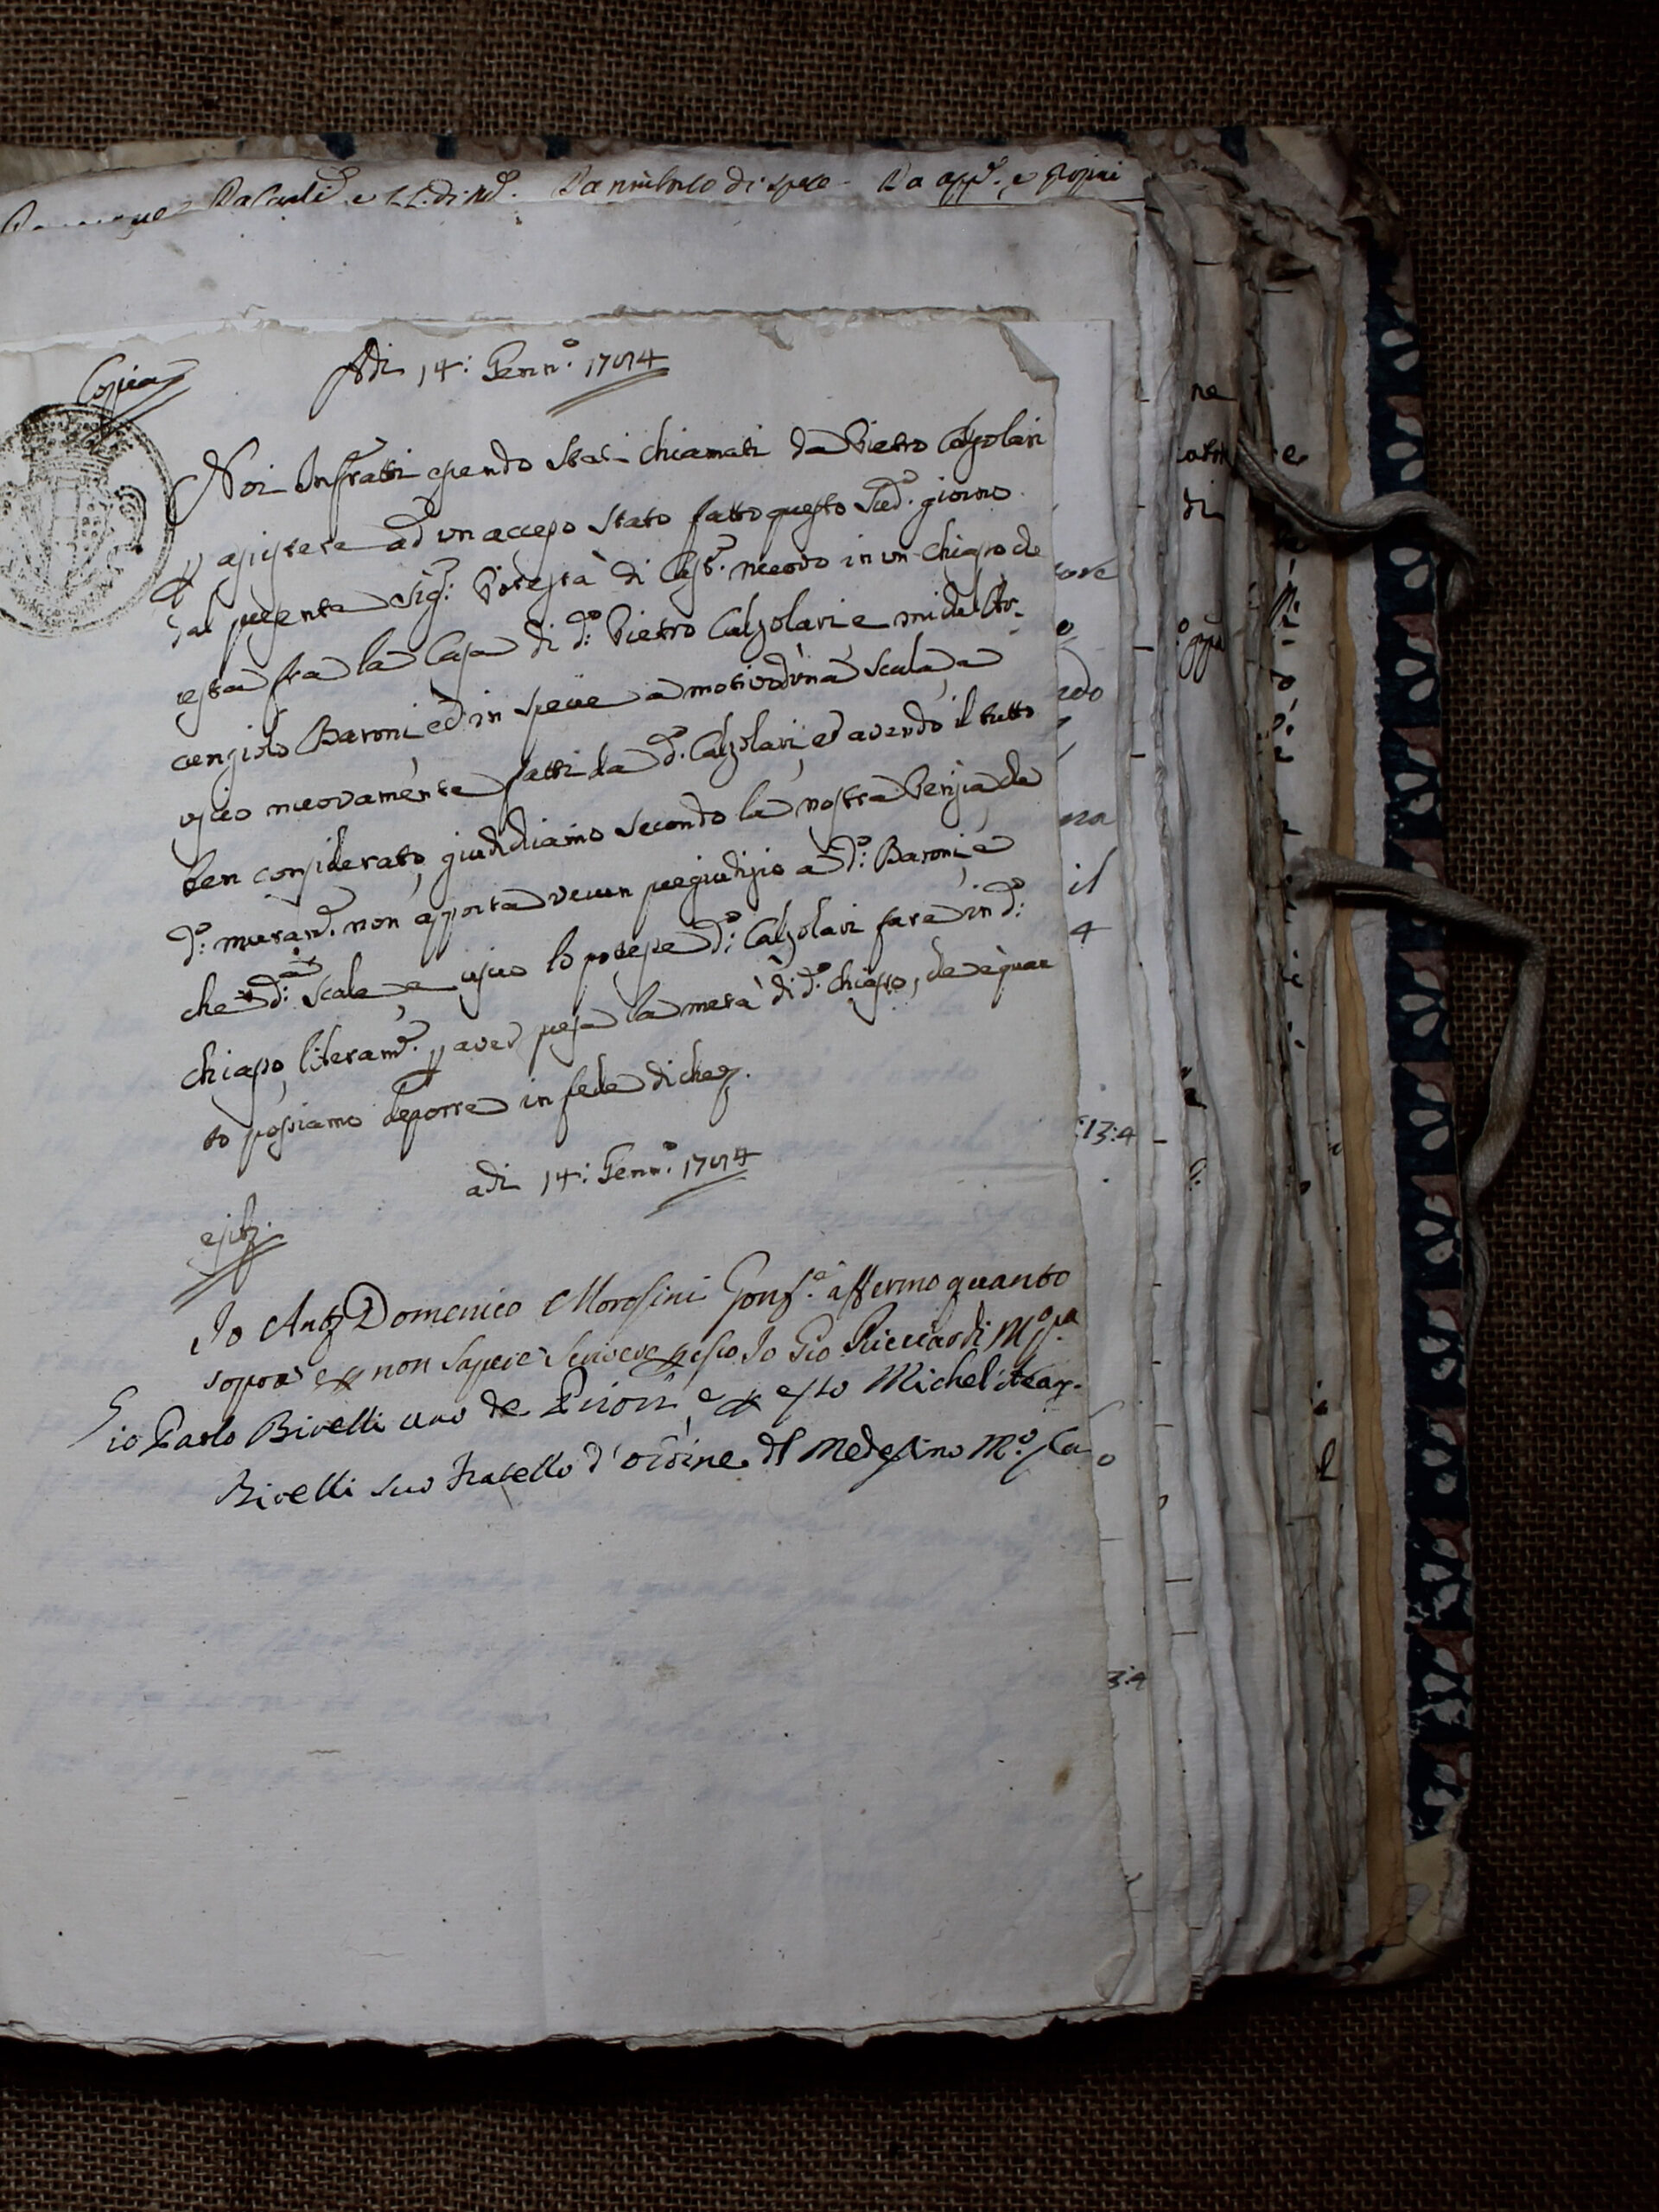 Da Carli e LL. di Nd. Da numbulo di spese - Da app. e
Copia
Adi 14: Genn.o 1794
Noi Infratti essendo stati chiamati da Pietro Calzolari
p assistere ad un accesso stato fatto questo Sud.o giorno
dal presente Sig.r Potestà di Cast.o nuovo in un chiasso che
resta fra la Casa di d.o Pietro Calzolari e Michel Ar=
cangiolo Baroni ed in specie a motivo d'una scala, e
uscio nuovamente fatti da d.o Calzolari, ed avendo il tutto
ben considerato, giudichiamo secondo la nostra Perizia che
d.o muram.o non apporta verun pregiudizio a d.o Baroni, e
che d.a scala, e uscio lo potesse d.o Calzolari fare in d.o
chiasso, literam.e p aver presa la metà di d.o chiasso, che è quan
to possiamo deporre in fede di che
adi 14: Genn.o 1794
Io Ant Domenico Morosini affermo quanto
sopra e p non sapere scrivere p esso Io Gio Ricciardi M.o p.a
Gio Paolo Birelli uno de Periti, e p esso Michel'Arcan.
Birelli suo Fratello d'ordine dl Medesimo M.o p.a
ne
di
il
4
:13:4
3:4